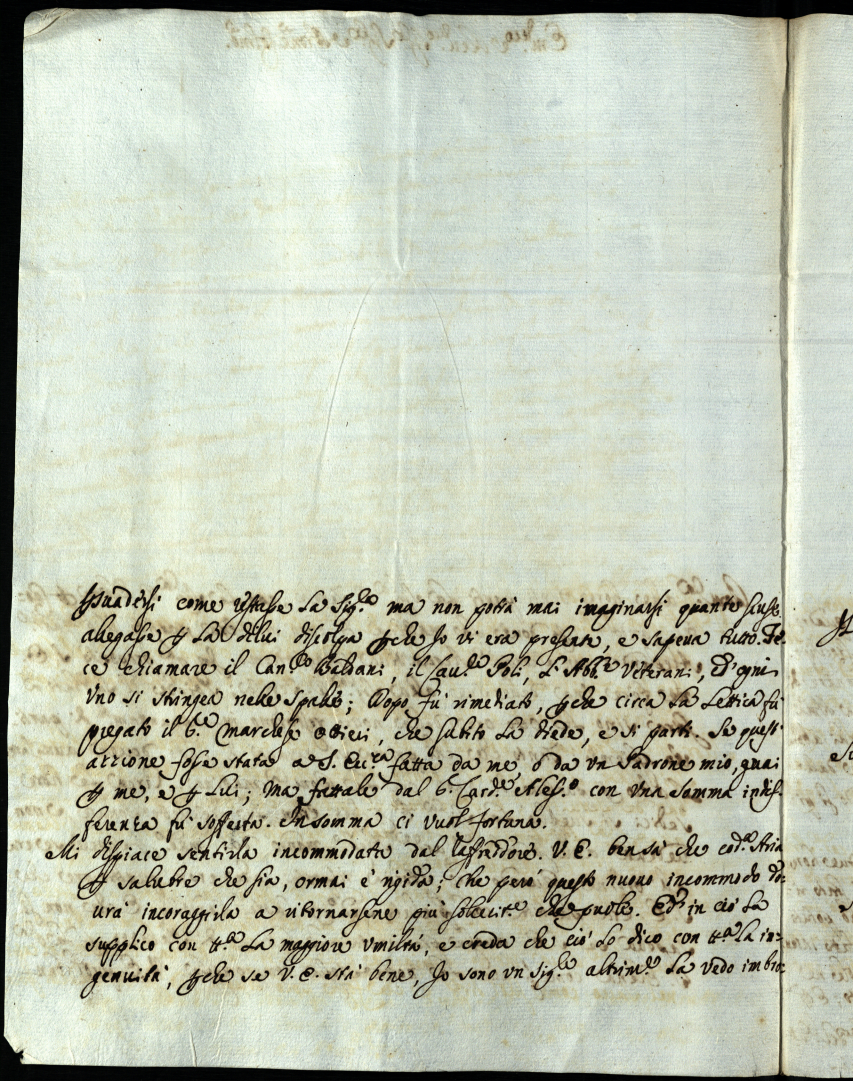 suadersi come restasse la Sig.ra ma non potrà mai imaginarsi quante scuse
allegasse p la di lui discolpa pche Io vi era presente, e sapeva tutto. Fe-
ce chiamare il Can.co Baldani, il Cau.re Poli, l'Abb.e Veterani, ed ogni
vno si stringea nelle spalle; Dopo fù rimediato, pche circa la Lettica fù
pregato il S.r Marchese Ottieri, che subito la diede, e si partì. Se quest'
azzione fosse stata a S. Ecc.za fatta da me, ò da vn Padrone mio, guai
p me, e p Lui; ma fattale dal S.r Card.e Aless.o con vna somma indif-
ferenza fù sofferta. In somma ci vuol fortuna.
Mi dispiace sentirla incommodata dal raffreddore. V. E. ben sà che cod.a Aria
p salubre che sia, ormai è rigida; che però questo nuouo incommodo do-
urà incoraggirla a ritornarsene più sollecit.e che puole. Ed in ciò la
supplico con tt.a la maggiore vmiltà, e creda che ciò lo dico con tt.a la in-
genuità, pche se V. E. stà bene, Io sono vn Sig.re altrim.e la vedo imbro-